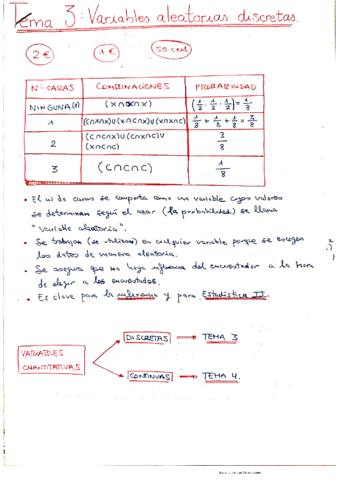 Tema 3: Variables aleatorias discretas.
2 € 1 € 50 cent
Nº CARAS COMBINACIONES PROBABILIDAD
NINGUNA (0) (x∩x∩x) (1/2 · 1/2 · 1/2) = 1/8
1 (c∩x∩x)∪(x∩c∩x)∪(x∩x∩c) 1/8 + 1/8 + 1/8 = 3/8
2 (c∩c∩x)∪(c∩x∩c)∪
(x∩c∩c) 3/8
3 (c∩c∩c) 1/8
• El nº de caras se comporta como una variable cuyos valores
se determinan según el azar (la probabilidad) se llama
"variable aleatoria".
• Se trabajan (se utilizan) en cualquier variable porque se escogen
los datos de manera aleatoria.
• Se asegura que no haya influencia del encuestador a la hora
de elegir a los encuestados.
• Es clave para la inferencia y para Estadística II.
VARIABLES
CUANTITATIVAS
DISCRETAS → TEMA 3
CONTINUAS → TEMA 4.